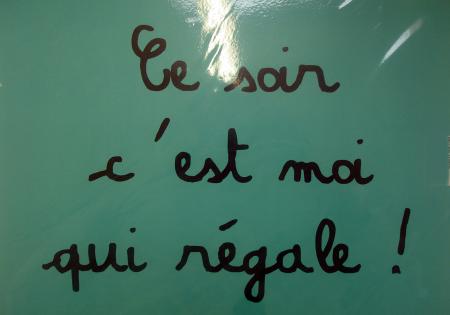 Ce soir
c'est moi
qui régale !